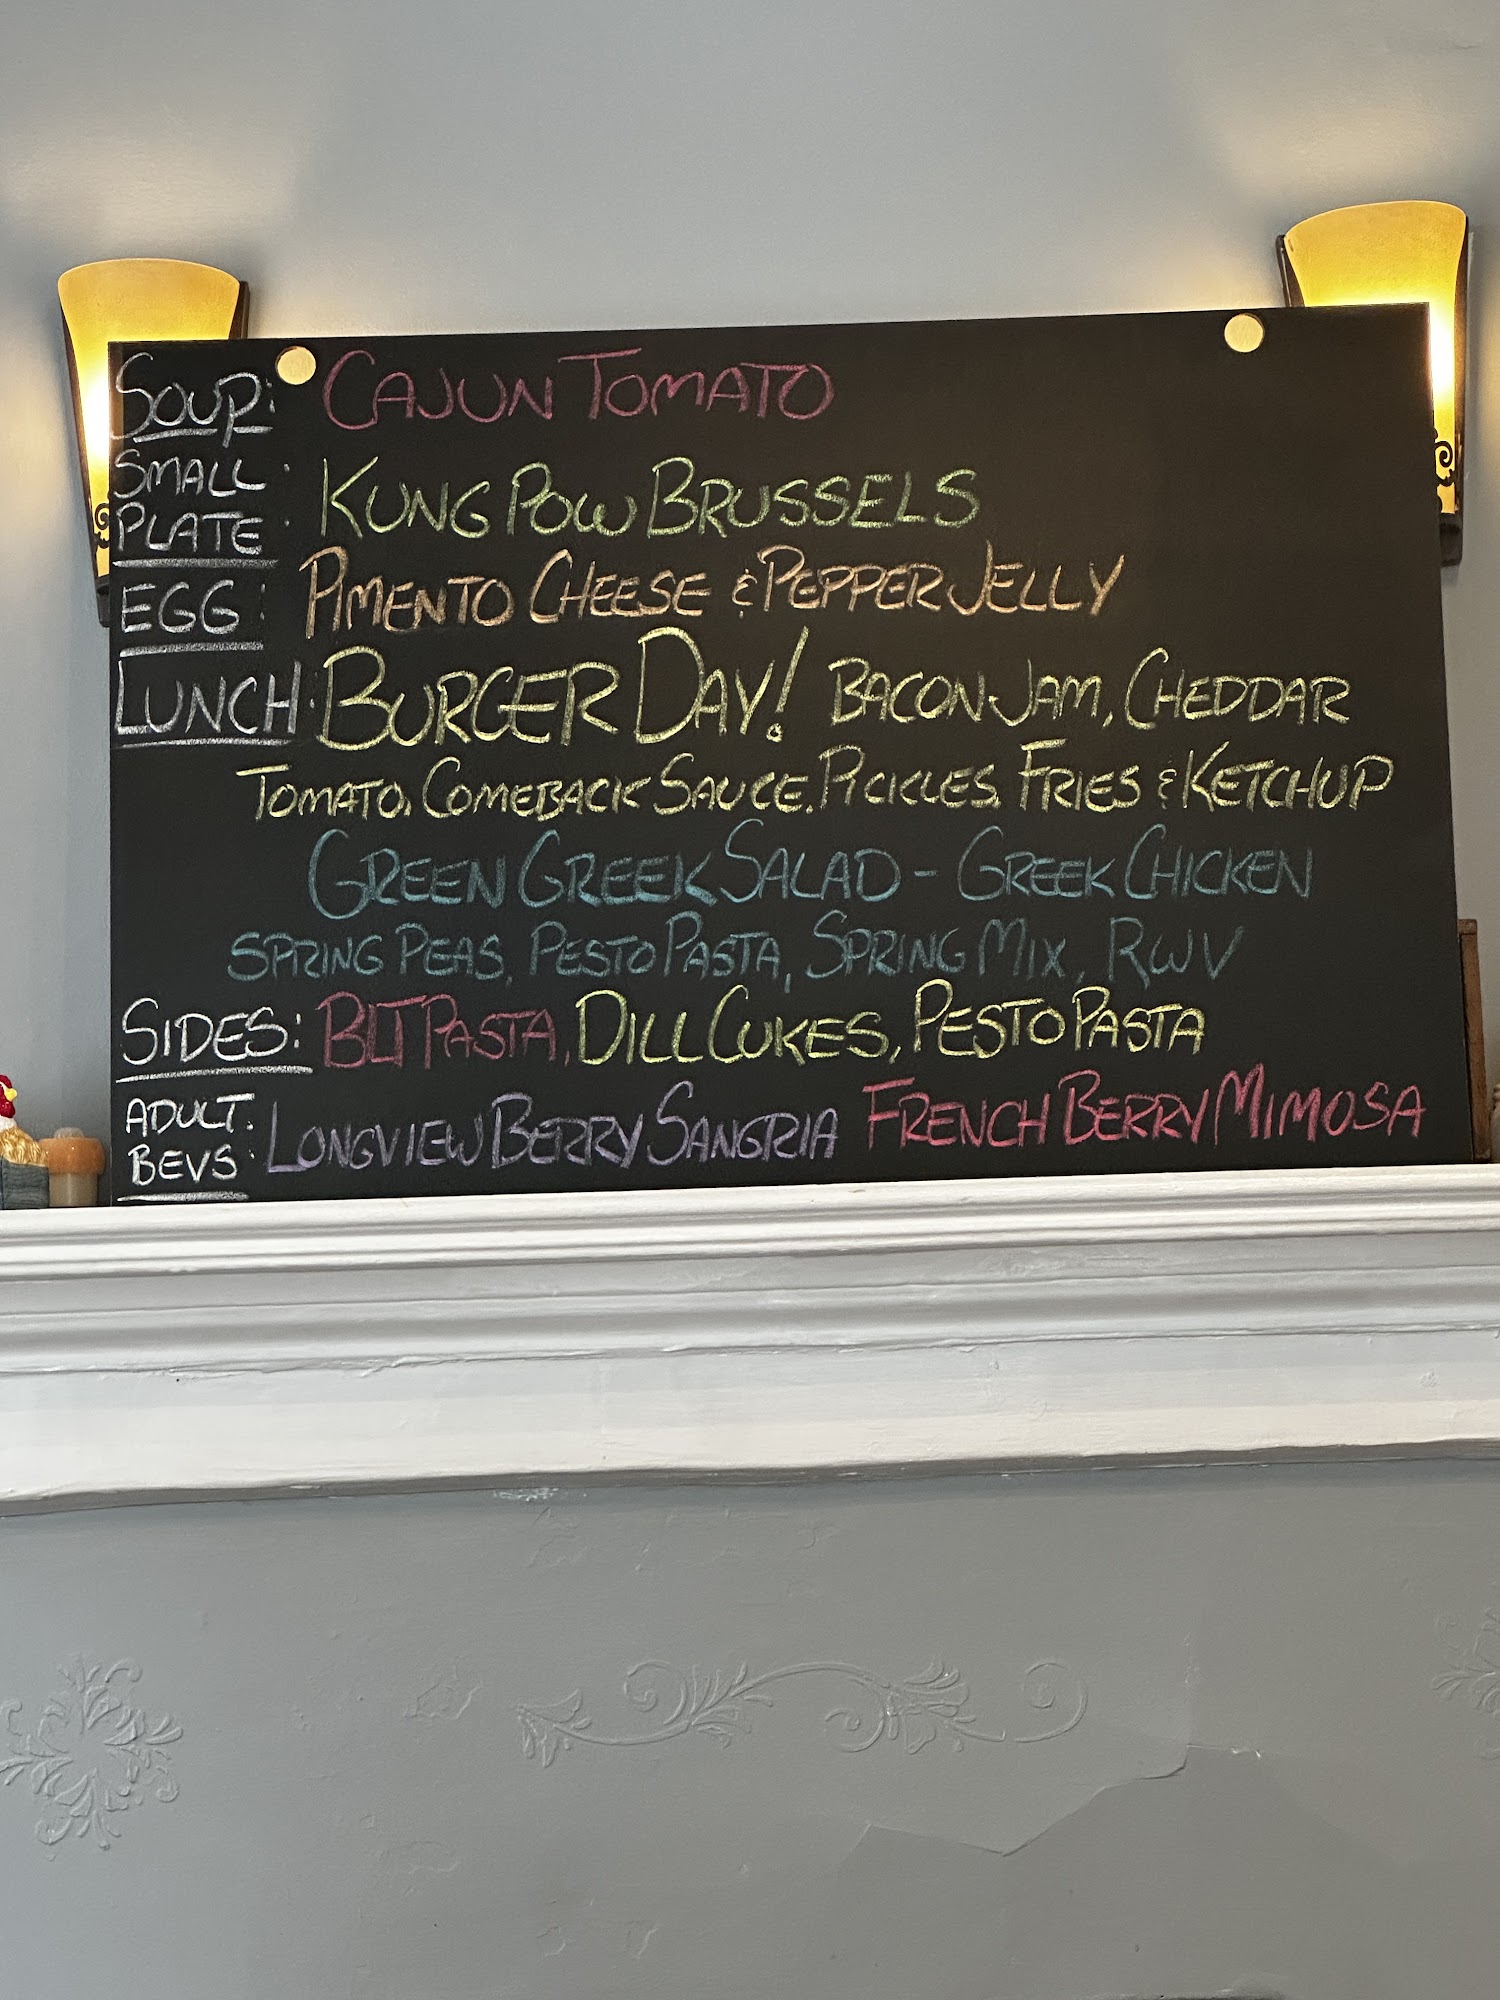 SOUP: CAJUN TOMATO
SMALL PLATE: KUNG POW BRUSSELS
EGG: PIMENTO CHEESE & PEPPER JELLY
LUNCH: BURGER DAY! BACON JAM, CHEDDAR
TOMATO, COMEBACK SAUCE, PICKLES, FRIES & KETCHUP
GREEN GREEK SALAD - GREEK CHICKEN
SPRING PEAS, PESTO PASTA, SPRING MIX, RWV
SIDES: BLT PASTA, DILL CUKES, PESTO PASTA
ADULT BEVS: LONGVIEW BERRY SANGRIA FRENCH BERRY MIMOSA